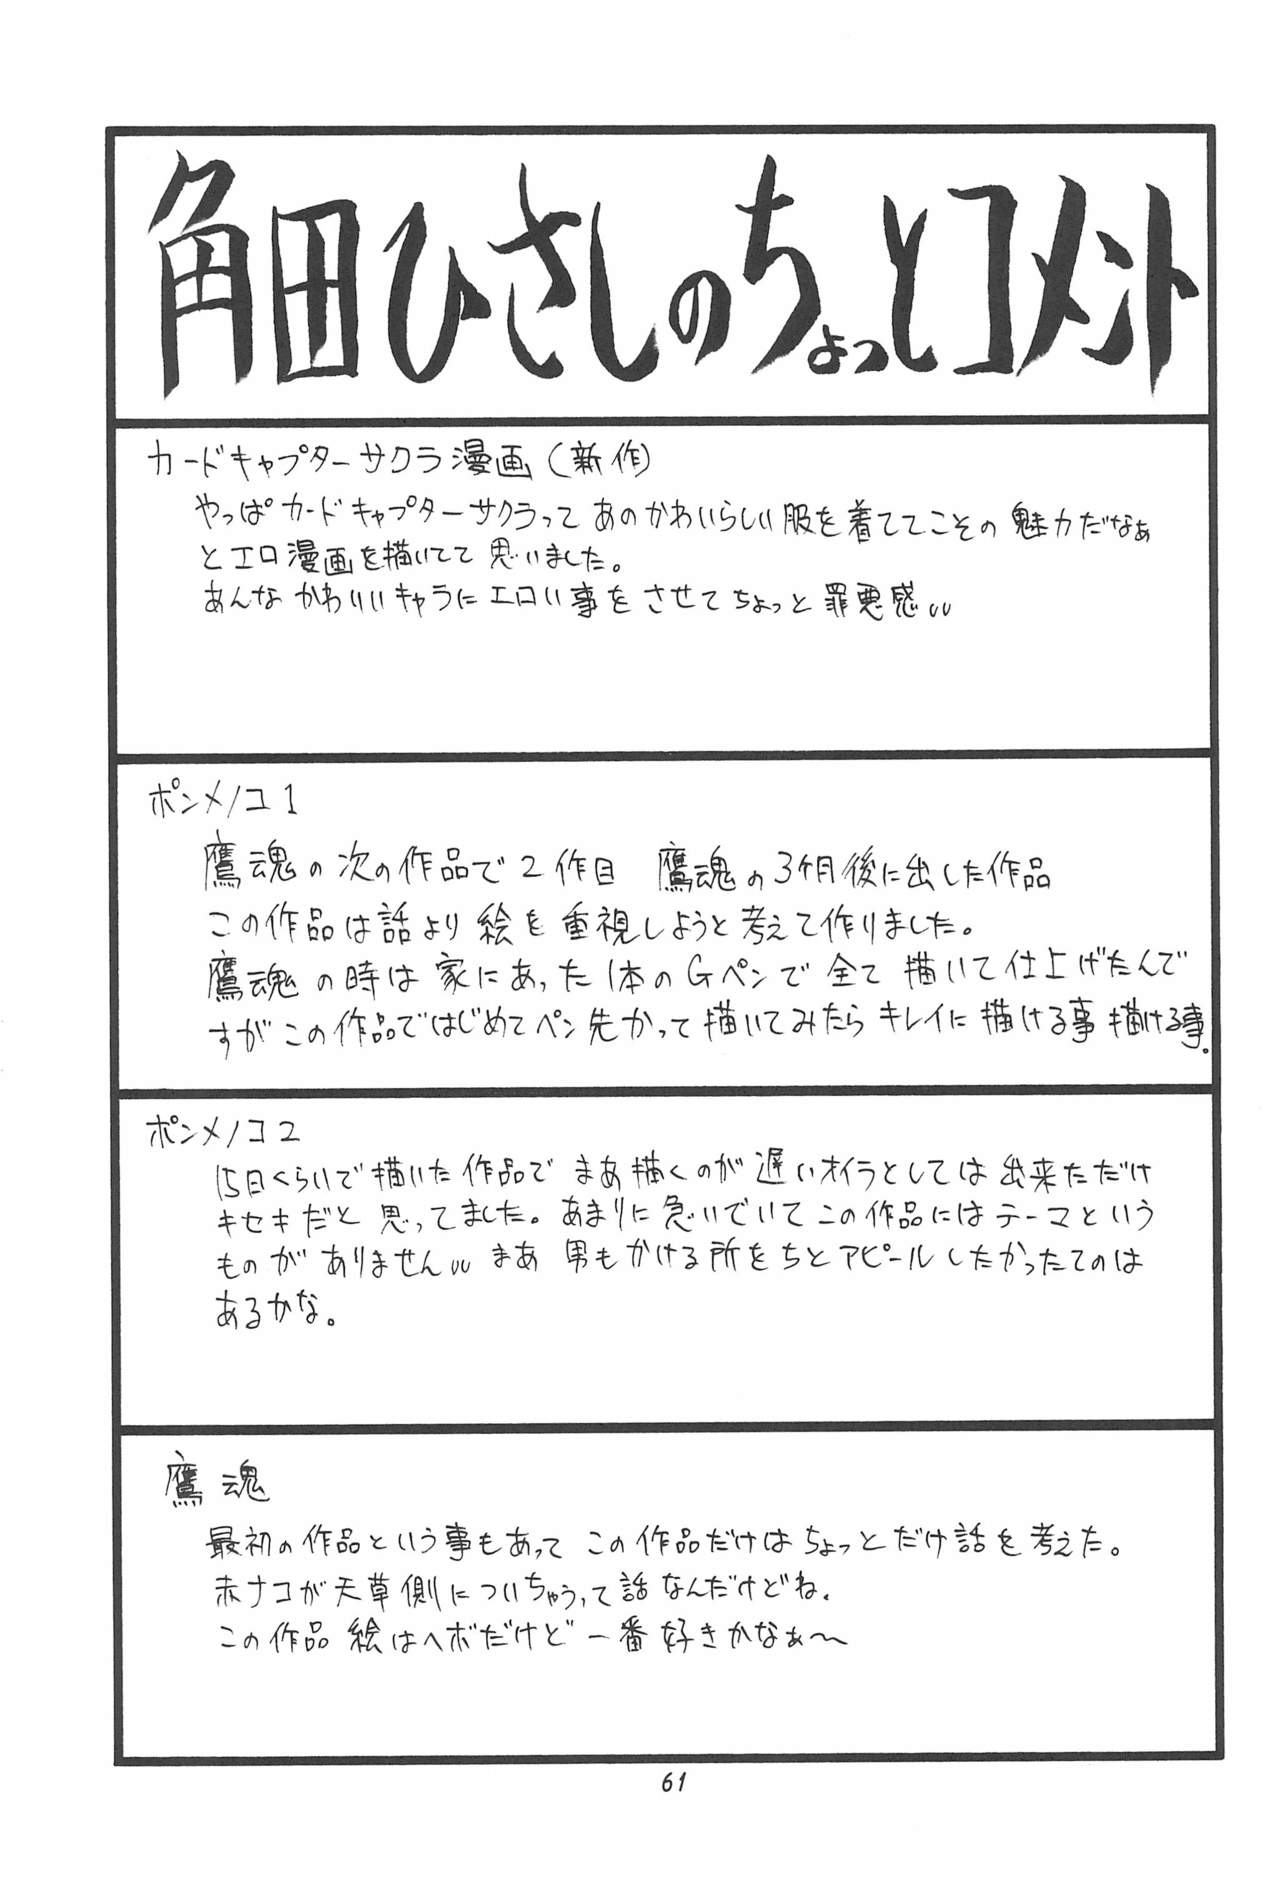 角田ひさしのちょっとコメント
カードキャプターサクラ漫画(新作)
やっぱカードキャプターサクラってあのかわいらしい服を着ててこその魅力だなぁ
とエロ漫画を描いてて思いました。
あんなかわいいキャラにエロい事をさせてちょっと罪悪感〃
ポンメノコ1
鷹魂の次の作品で2作目 鷹魂の3ヶ月後に出した作品
この作品は話より絵を重視しようと考えて作りました。
鷹魂の時は家にあった1本のGペンで全て描いて仕上げたんで
すがこの作品ではじめてペン先かって描いてみたらキレイに描ける事描ける事。
ポンメノコ2
15日くらいで描いた作品でまあ描くのが遅いオイラとしては出来ただけ
キセキだと思ってました。あまりに急いでいてこの作品にはテーマという
ものがありません〃まあ男もかける所をちとアピールしたかったてのは
あるかな。
鷹魂
最初の作品という事もあってこの作品だけはちょっとだけ話を考えた。
赤ナコが天草側についちゃうって話なんだけどね.
この作品絵はヘボだけど一番好きかなぁ〜
61